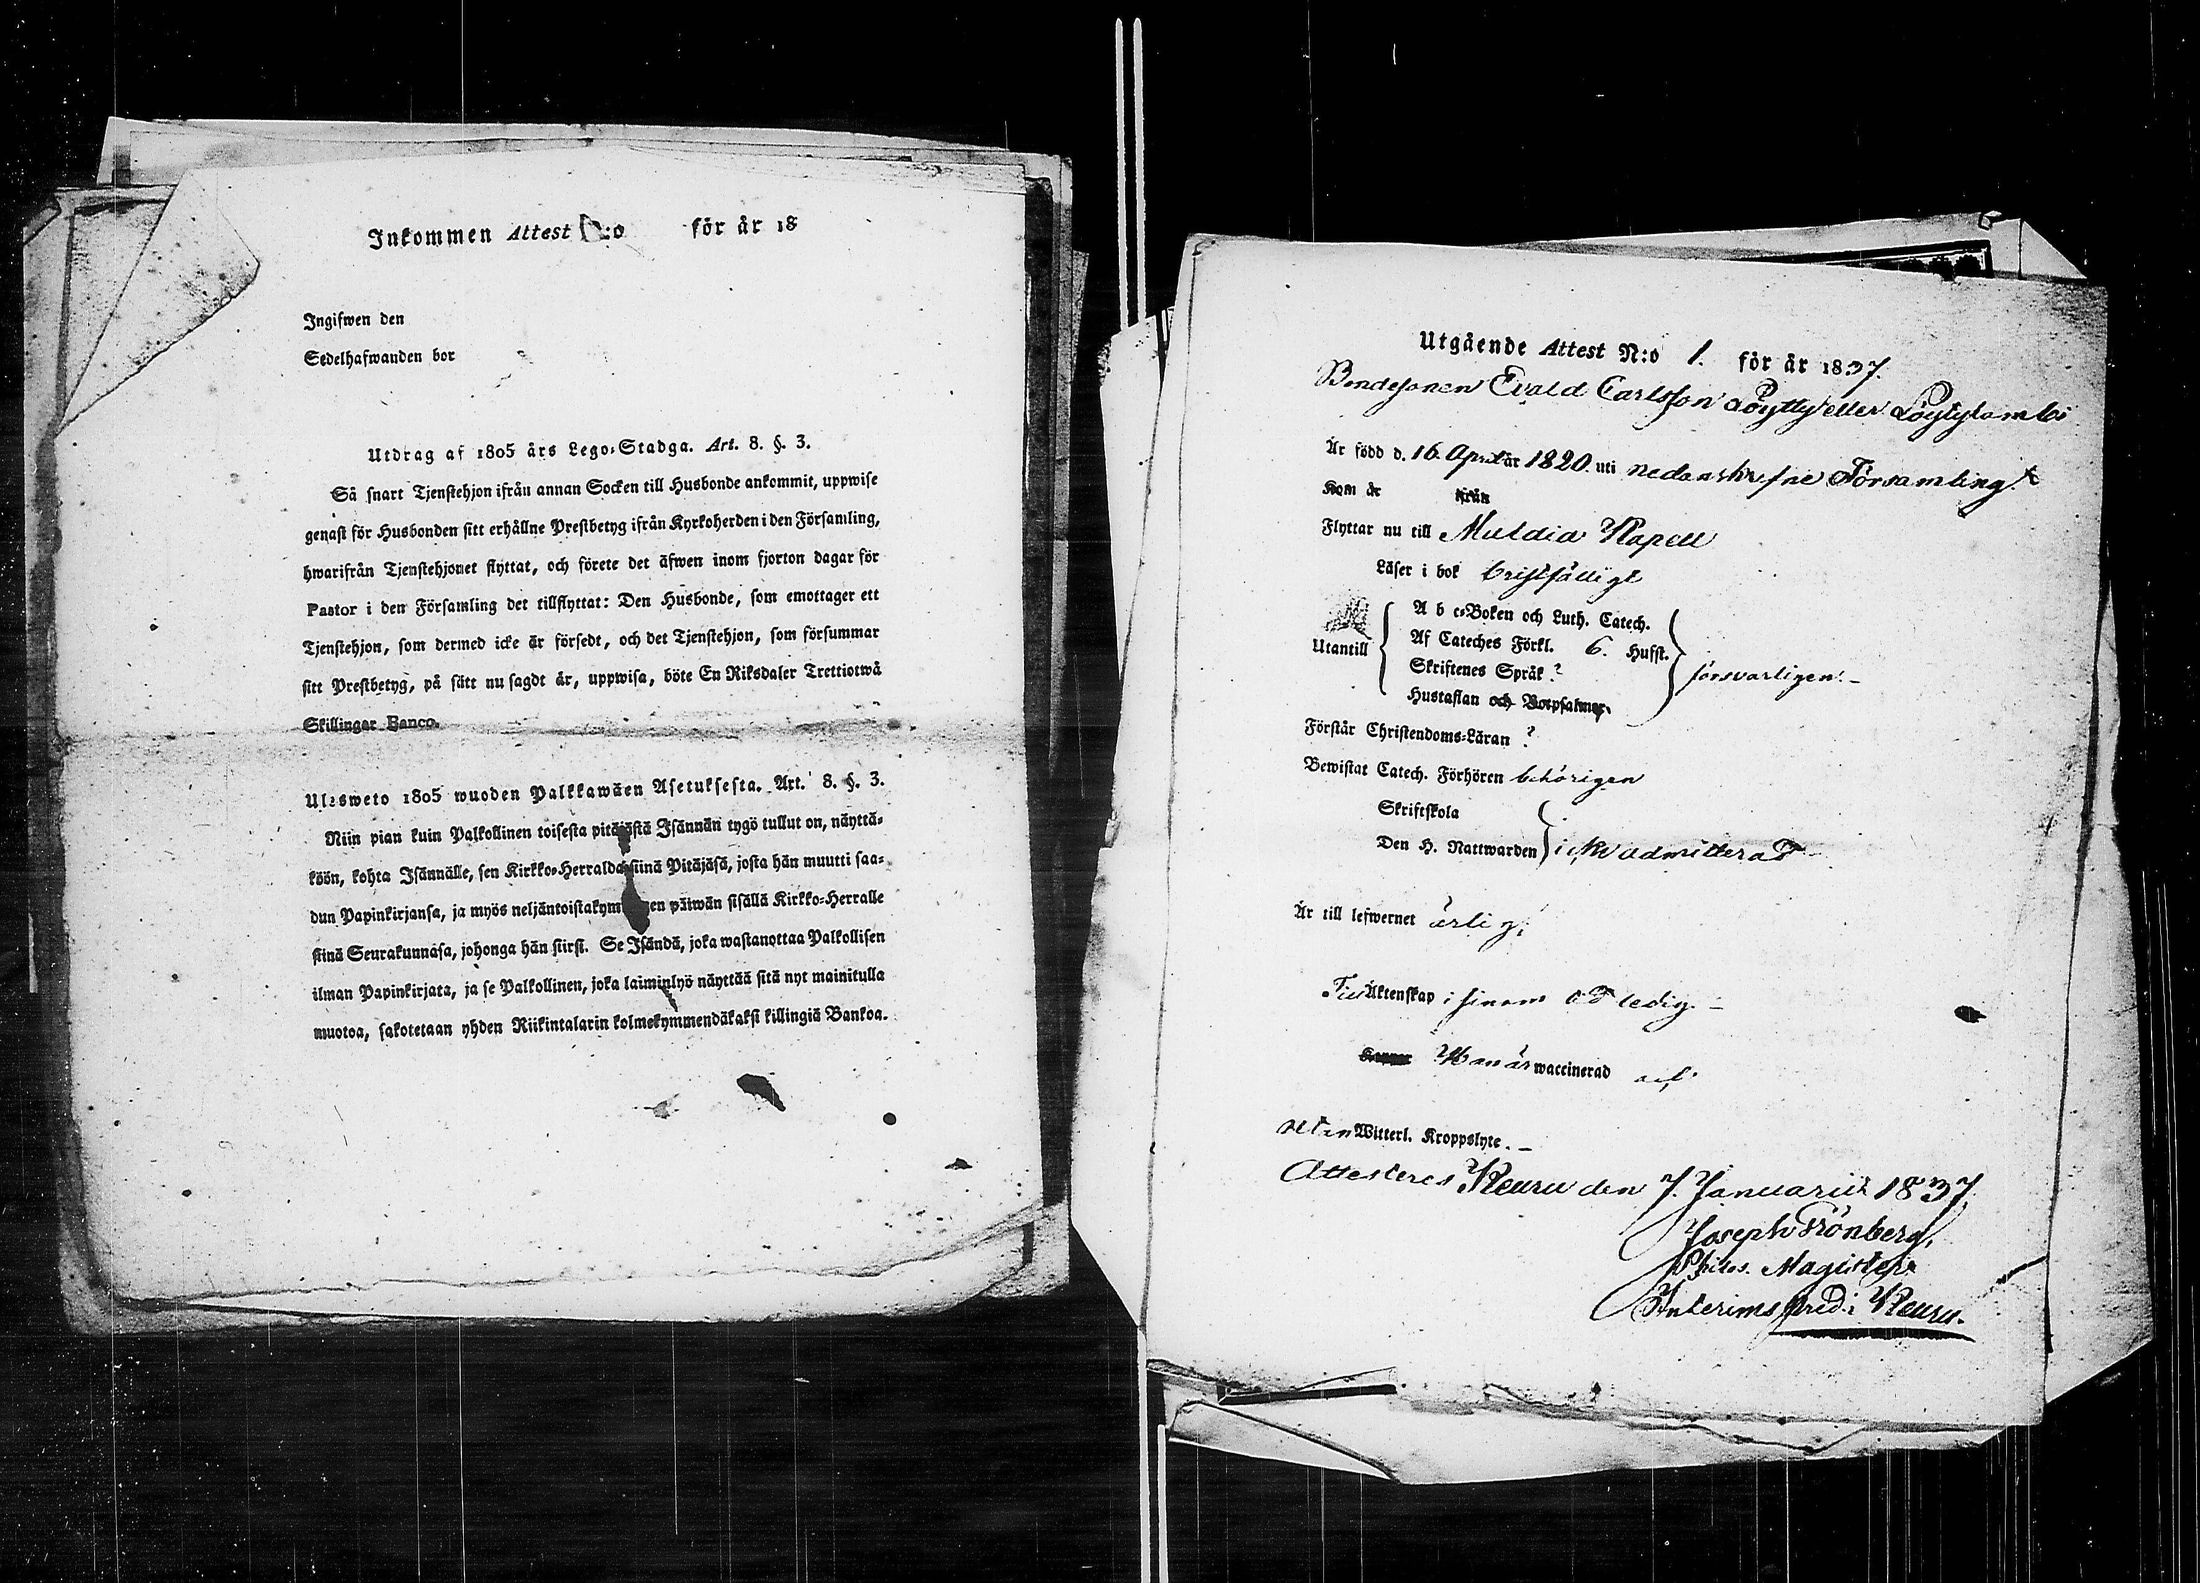 Inkommen Attest N:o för år 18
Ingifwen den
Sedelhafwanden bor
Utdrag af 1805 års Lego-Stadga. Art. 8. §. 3.
Så snart Tjenstehjon ifrån annan Socken till Husbonde ankommit, uppwise
genast för Husbonden sitt erhållne Prestbetyg ifrån Kyrkoherden i den Församling,
hwarifrån Tjenstehjonet flyttat, och förete det äfwen inom fjorton dagar för
Pastor i den Församling det tillflyttat: Den Husbonde, som emottager ett
Tjenstehjon, som dermed icke är försedt, och det Tjenstehjon, som försummar
sitt Prestbetyg, på sätt nu sagdt är, uppwisa, böte En Riksdaler Trettiotwå
Skillingar Banco.
Ulosweto 1805 wuoden Palkkawäen Asetuksesta. Art. 8. §. 3.
Niin pian kuin Palkollinen toisesta pitäjästä Isännän tygö tullut on, näyttä-
köön, kohta Isännälle, sen Kirkko-Herralda siinä Pitäjäsä, josta hän muutti saa-
dun Papinkirjansa, ja myös neljäntoistakymmenen päiwän sisällä Kirkko-Herralle
siinä Seurakunnasa, johonga hän siirsi. Se Isändä, joka wastanottaa Palkollisen
ilman Papinkirjata, ja se Palkollinen, joka laiminlyö näyttää sitä nyt mainitulla
muotoa, sakotetaan yhden Riikintalarin kolmekymmendäkaksi killingiä Bankoa.
Utgående Attest N:o 1. för år 1837.
Bondesonen Evald Carlsson Löytty eller Löytylambi
Är född d. 16 April år 1820. uti nedanskrefne Församling.
Kom år ifrån
Flyttar nu till Muldia Kapell
Läser i bok bristfälligt
A b c-Boken och Luth. Catech.
Af Cateches Förkl. 6. Hufst.
Utantill
Skriftenes Språk ?
försvarligen. –
Hustaflan och Botpsalmer
Förstår Christendoms-Läran ?
Bewistat Catech. Förhören behörigen
Skriftskola
Den H. Nattwarden icke admitterad –
Är till lefwernet ärlig,
Till Äktenskap i sinom od ledig. –
Kunnar Han är waccinerad och
utan Witterl. Kroppslyte. –
Attesteras Keuru den 7. Januarii 1837.
Joseph Frönberg,
Philos. Magister
Interims pred. i Keuru.